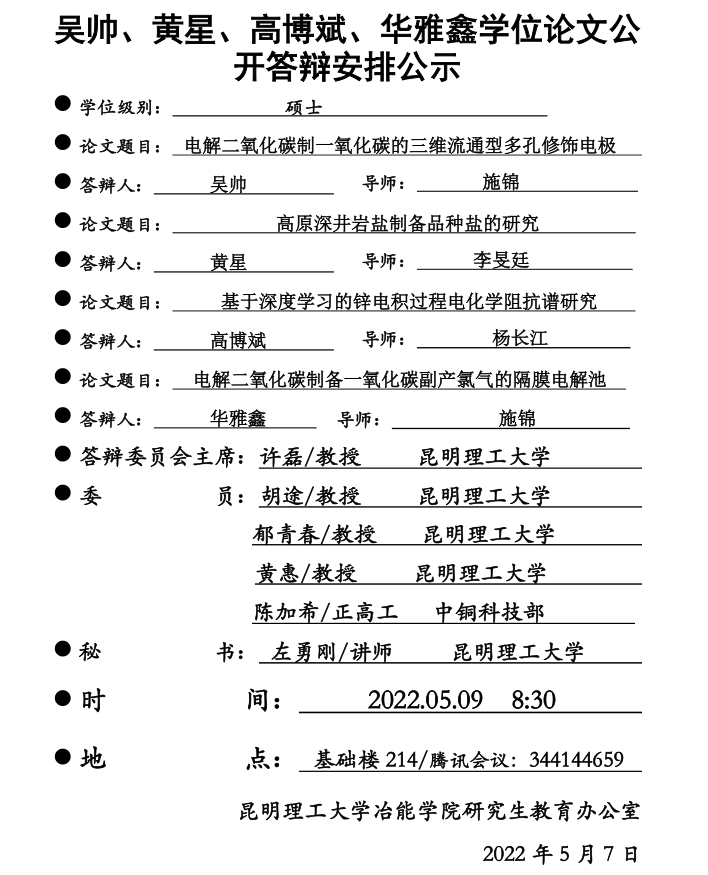 吴帅、黄星、高博斌、华雅鑫学位论文公
开答辩安排公示
● 学位级别： 硕士
● 论文题目： 电解二氧化碳制一氧化碳的三维流通型多孔修饰电极
● 答辩人： 吴帅 导师： 施锦
● 论文题目： 高原深井岩盐制备品种盐的研究
● 答辩人： 黄星 导师： 李旻廷
● 论文题目： 基于深度学习的锌电积过程电化学阻抗谱研究
● 答辩人： 高博斌 导师： 杨长江
● 论文题目： 电解二氧化碳制备一氧化碳副产氯气的隔膜电解池
● 答辩人： 华雅鑫 导师： 施锦
● 答辩委员会主席：许磊/教授 昆明理工大学
● 委 员：胡途/教授 昆明理工大学
郁青春/教授 昆明理工大学
黄惠/教授 昆明理工大学
陈加希/正高工 中铜科技部
● 秘 书： 左勇刚/讲师 昆明理工大学
● 时 间： 2022.05.09 8:30
● 地 点： 基础楼 214/腾讯会议：344144659
昆明理工大学冶能学院研究生教育办公室
2022 年 5 月 7 日